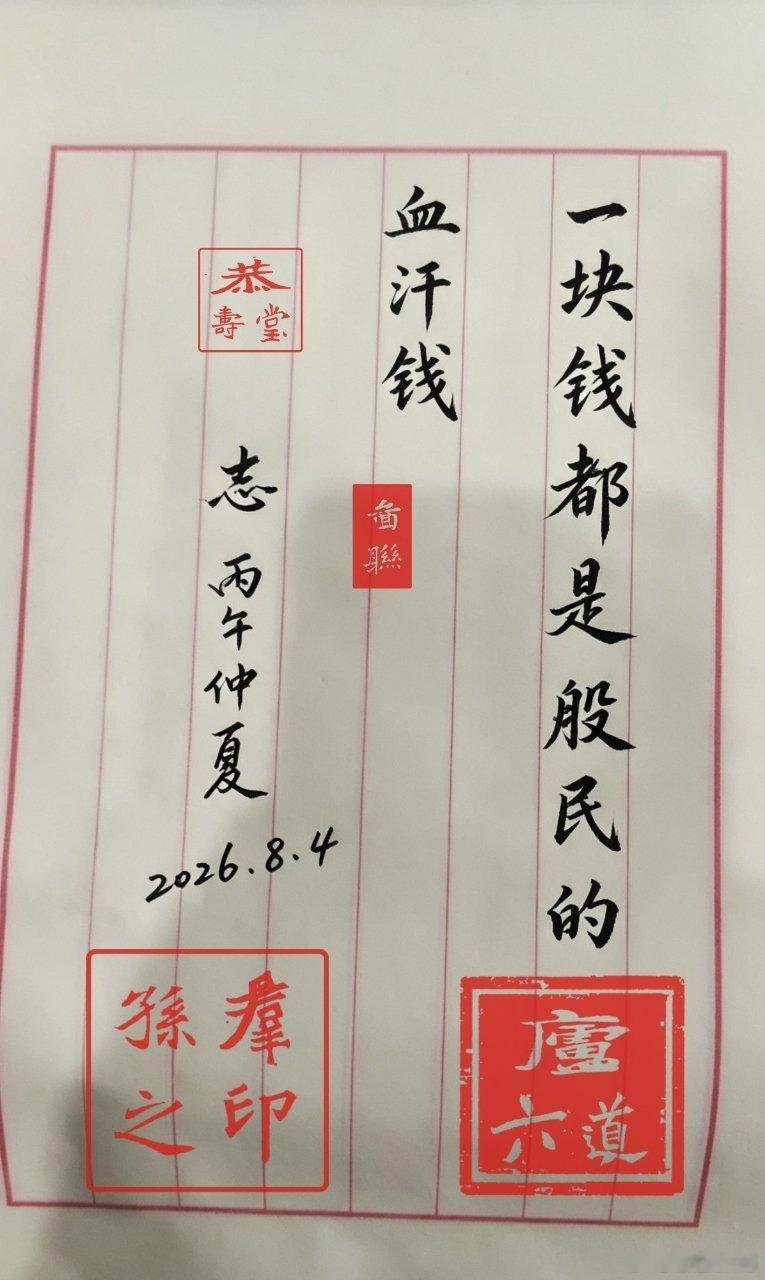 一块钱都是股民的
血汗钱
志 丙午仲夏
2026.8.4
恭
壽堂
聯
廬
六道
孫羣
之印